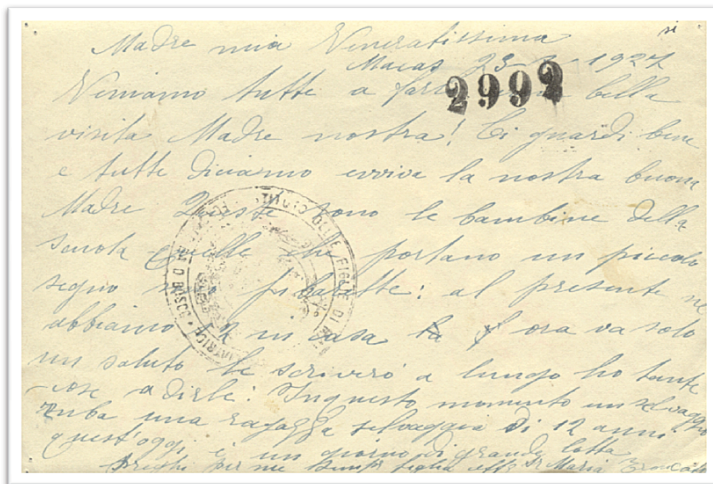 Madre mia Veneratissima
Macas 23- -1927
2992
Veniamo tutte a farle bella
visita Madre nostra! Ci guardi bene
e tutte diciamo evviva la nostra buona
Madre Queste sono le bambine della
scuola quelle che portano un piccolo
segno : al presente ne
abbiamo 12 in casa ora va solo
un saluto le scriverò a lungo ho tante
cose a dirle: In questo momento un selvaggio
ruba una ragazza selvaggia di 12 anni.
quest'oggi è un giorno di grande lotta
preghi per me figlia Sr Maria Troncatti
DELLE FIGLIE DI
BOSCO